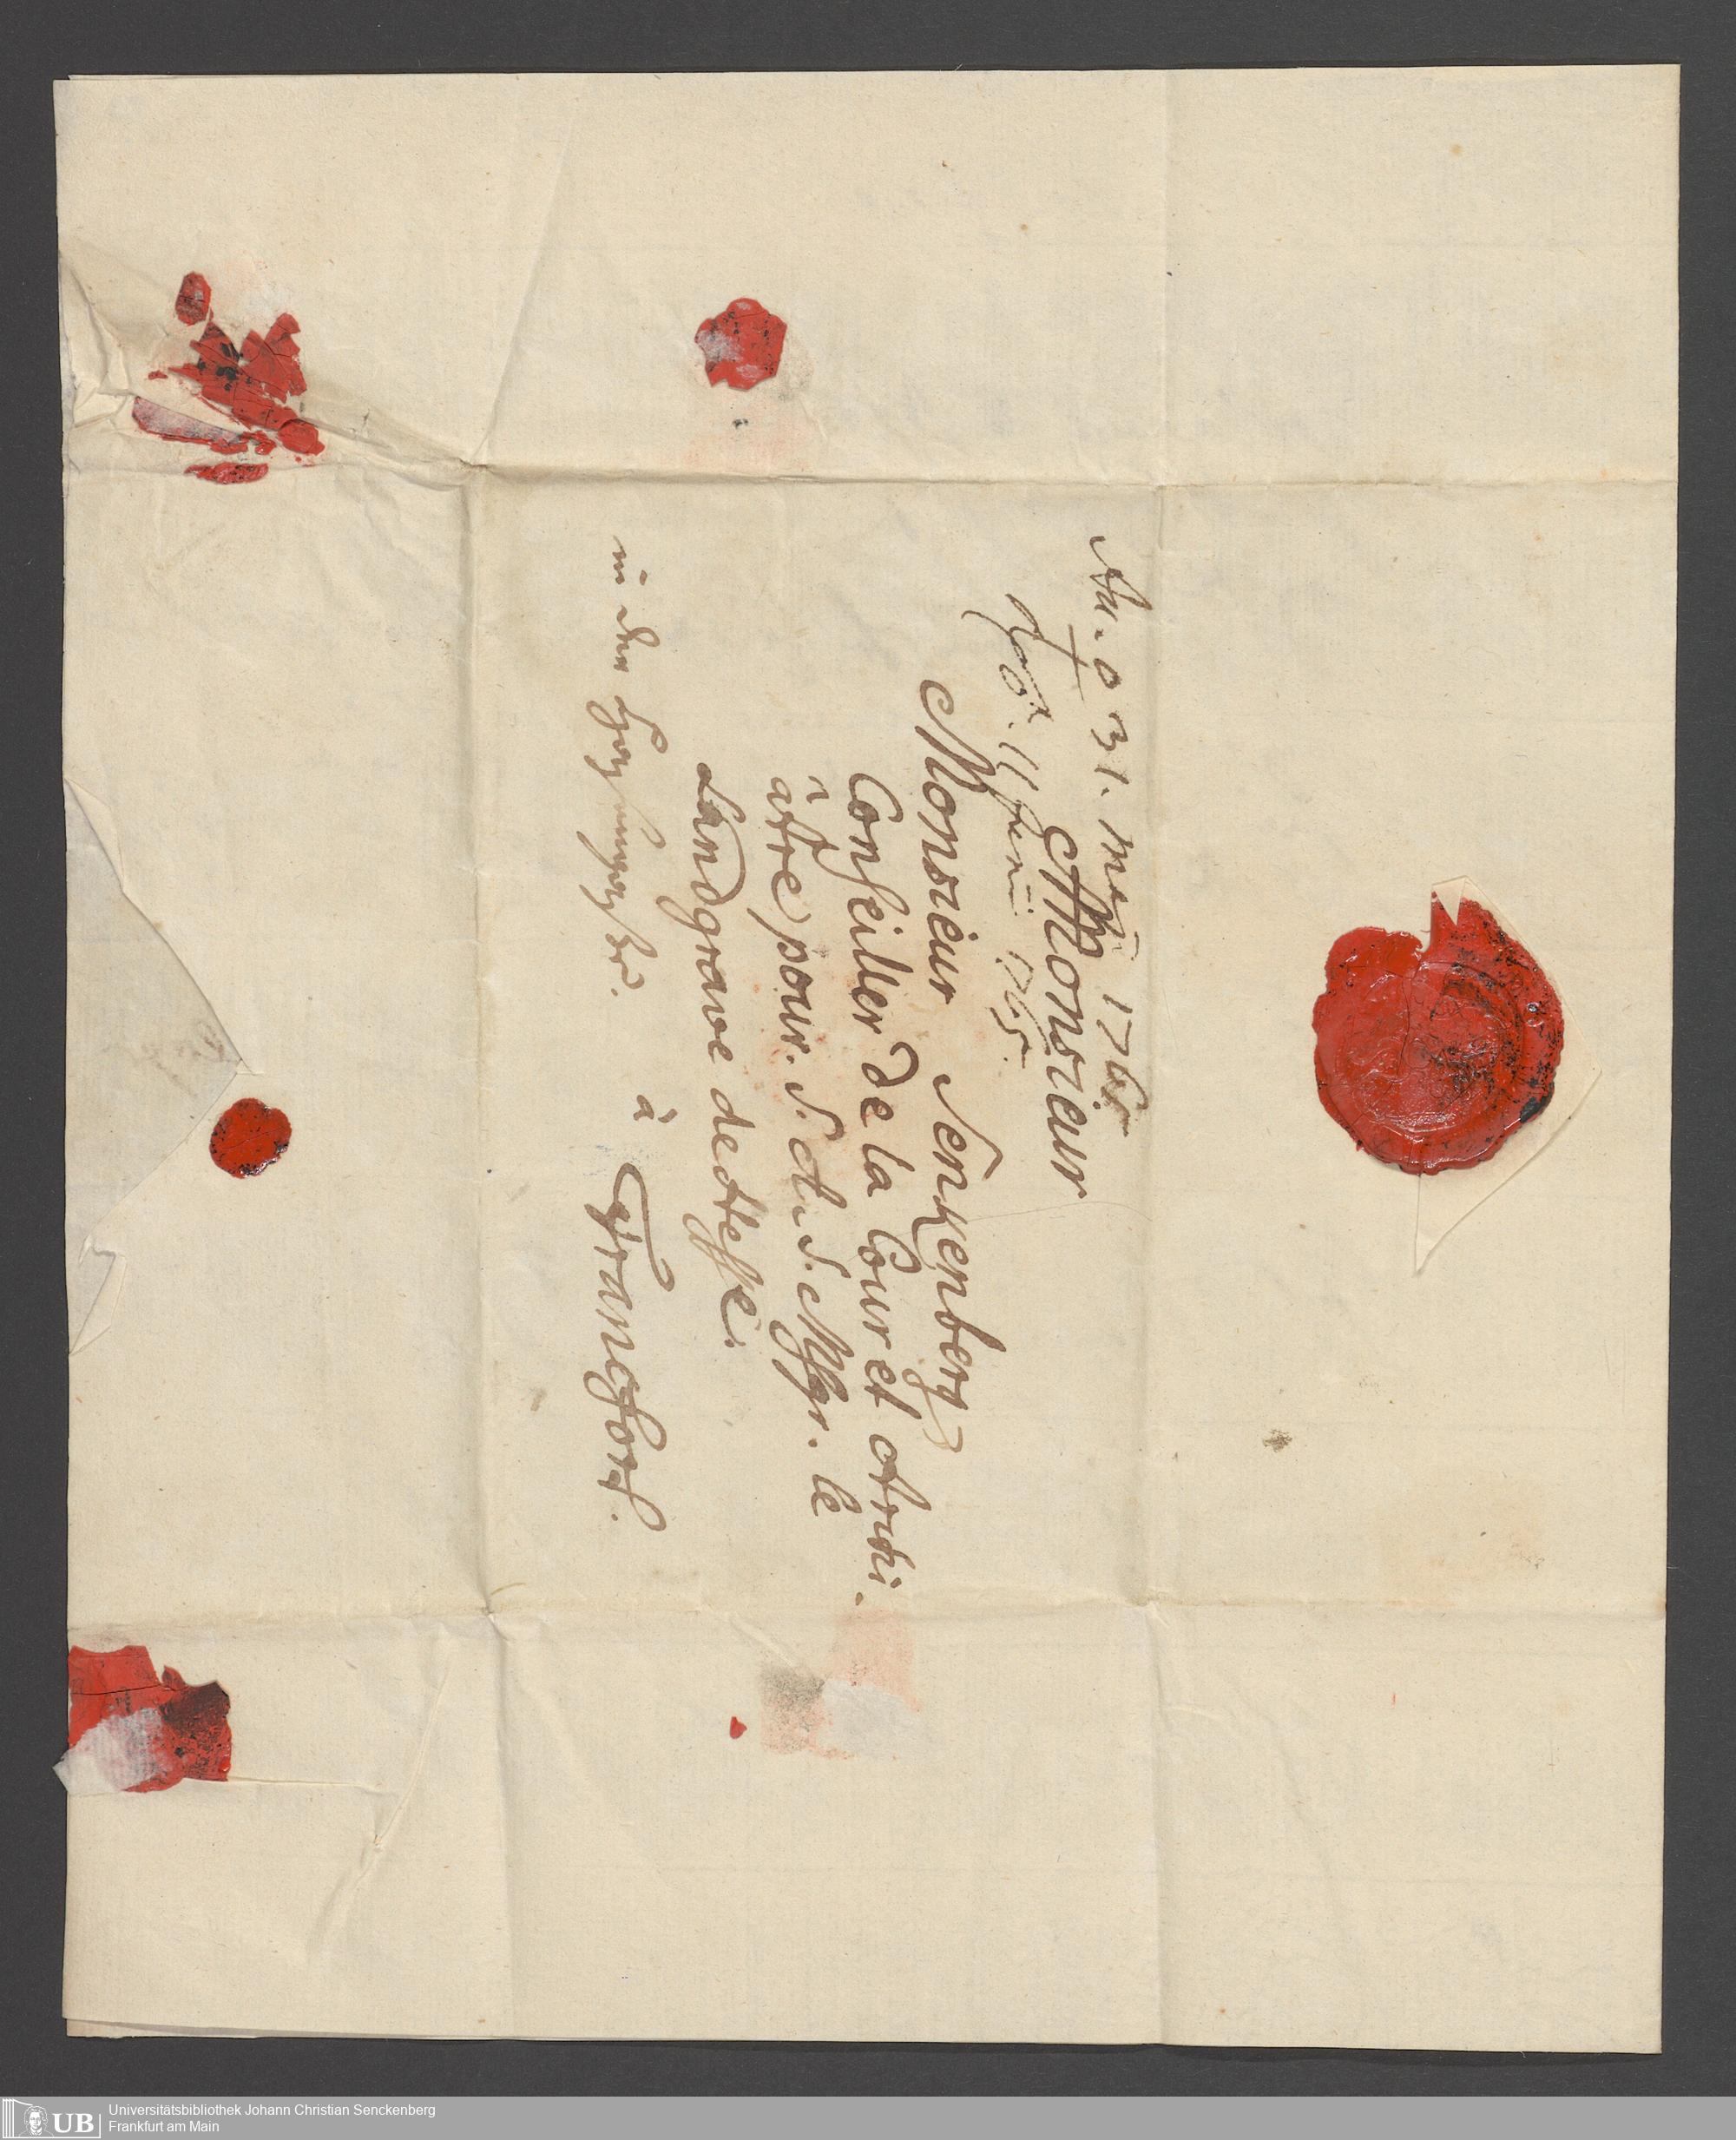 31. Maÿ 1765
Rspd. 11 Junii 1765.
A Monsieur
Monsieur Senkenberg
Conseiller de la Cour et Archi-
atre pour. S. A. S. Msgr. le
Landgrave de Hesse.
à Francfort.
in der
Universitätsbibliothek Johann Christian Senckenberg
Frankfurt am Main
UB